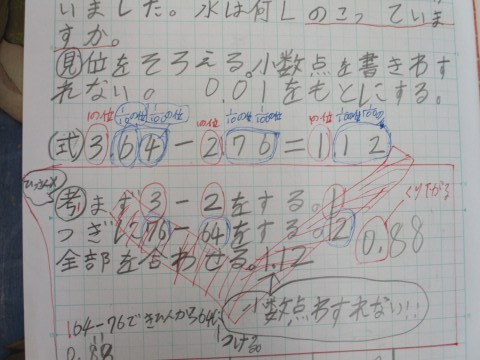 いました。水は何Lのこっていま
すか。
見位をそろえる。小数点を書きわす
れない。 0.01をもとにする。
1の位 1/10の位 1/100の位 1の位 1/10の位 1/100の位 1の位
式 3 64 - 2 76 = 1 12
考まず3-2をする。1
つぎに76-64をする。12
0.88
くりさがる
全部を合わせる。1.12
小数点わすれない!!
164-76で
つける
0.88